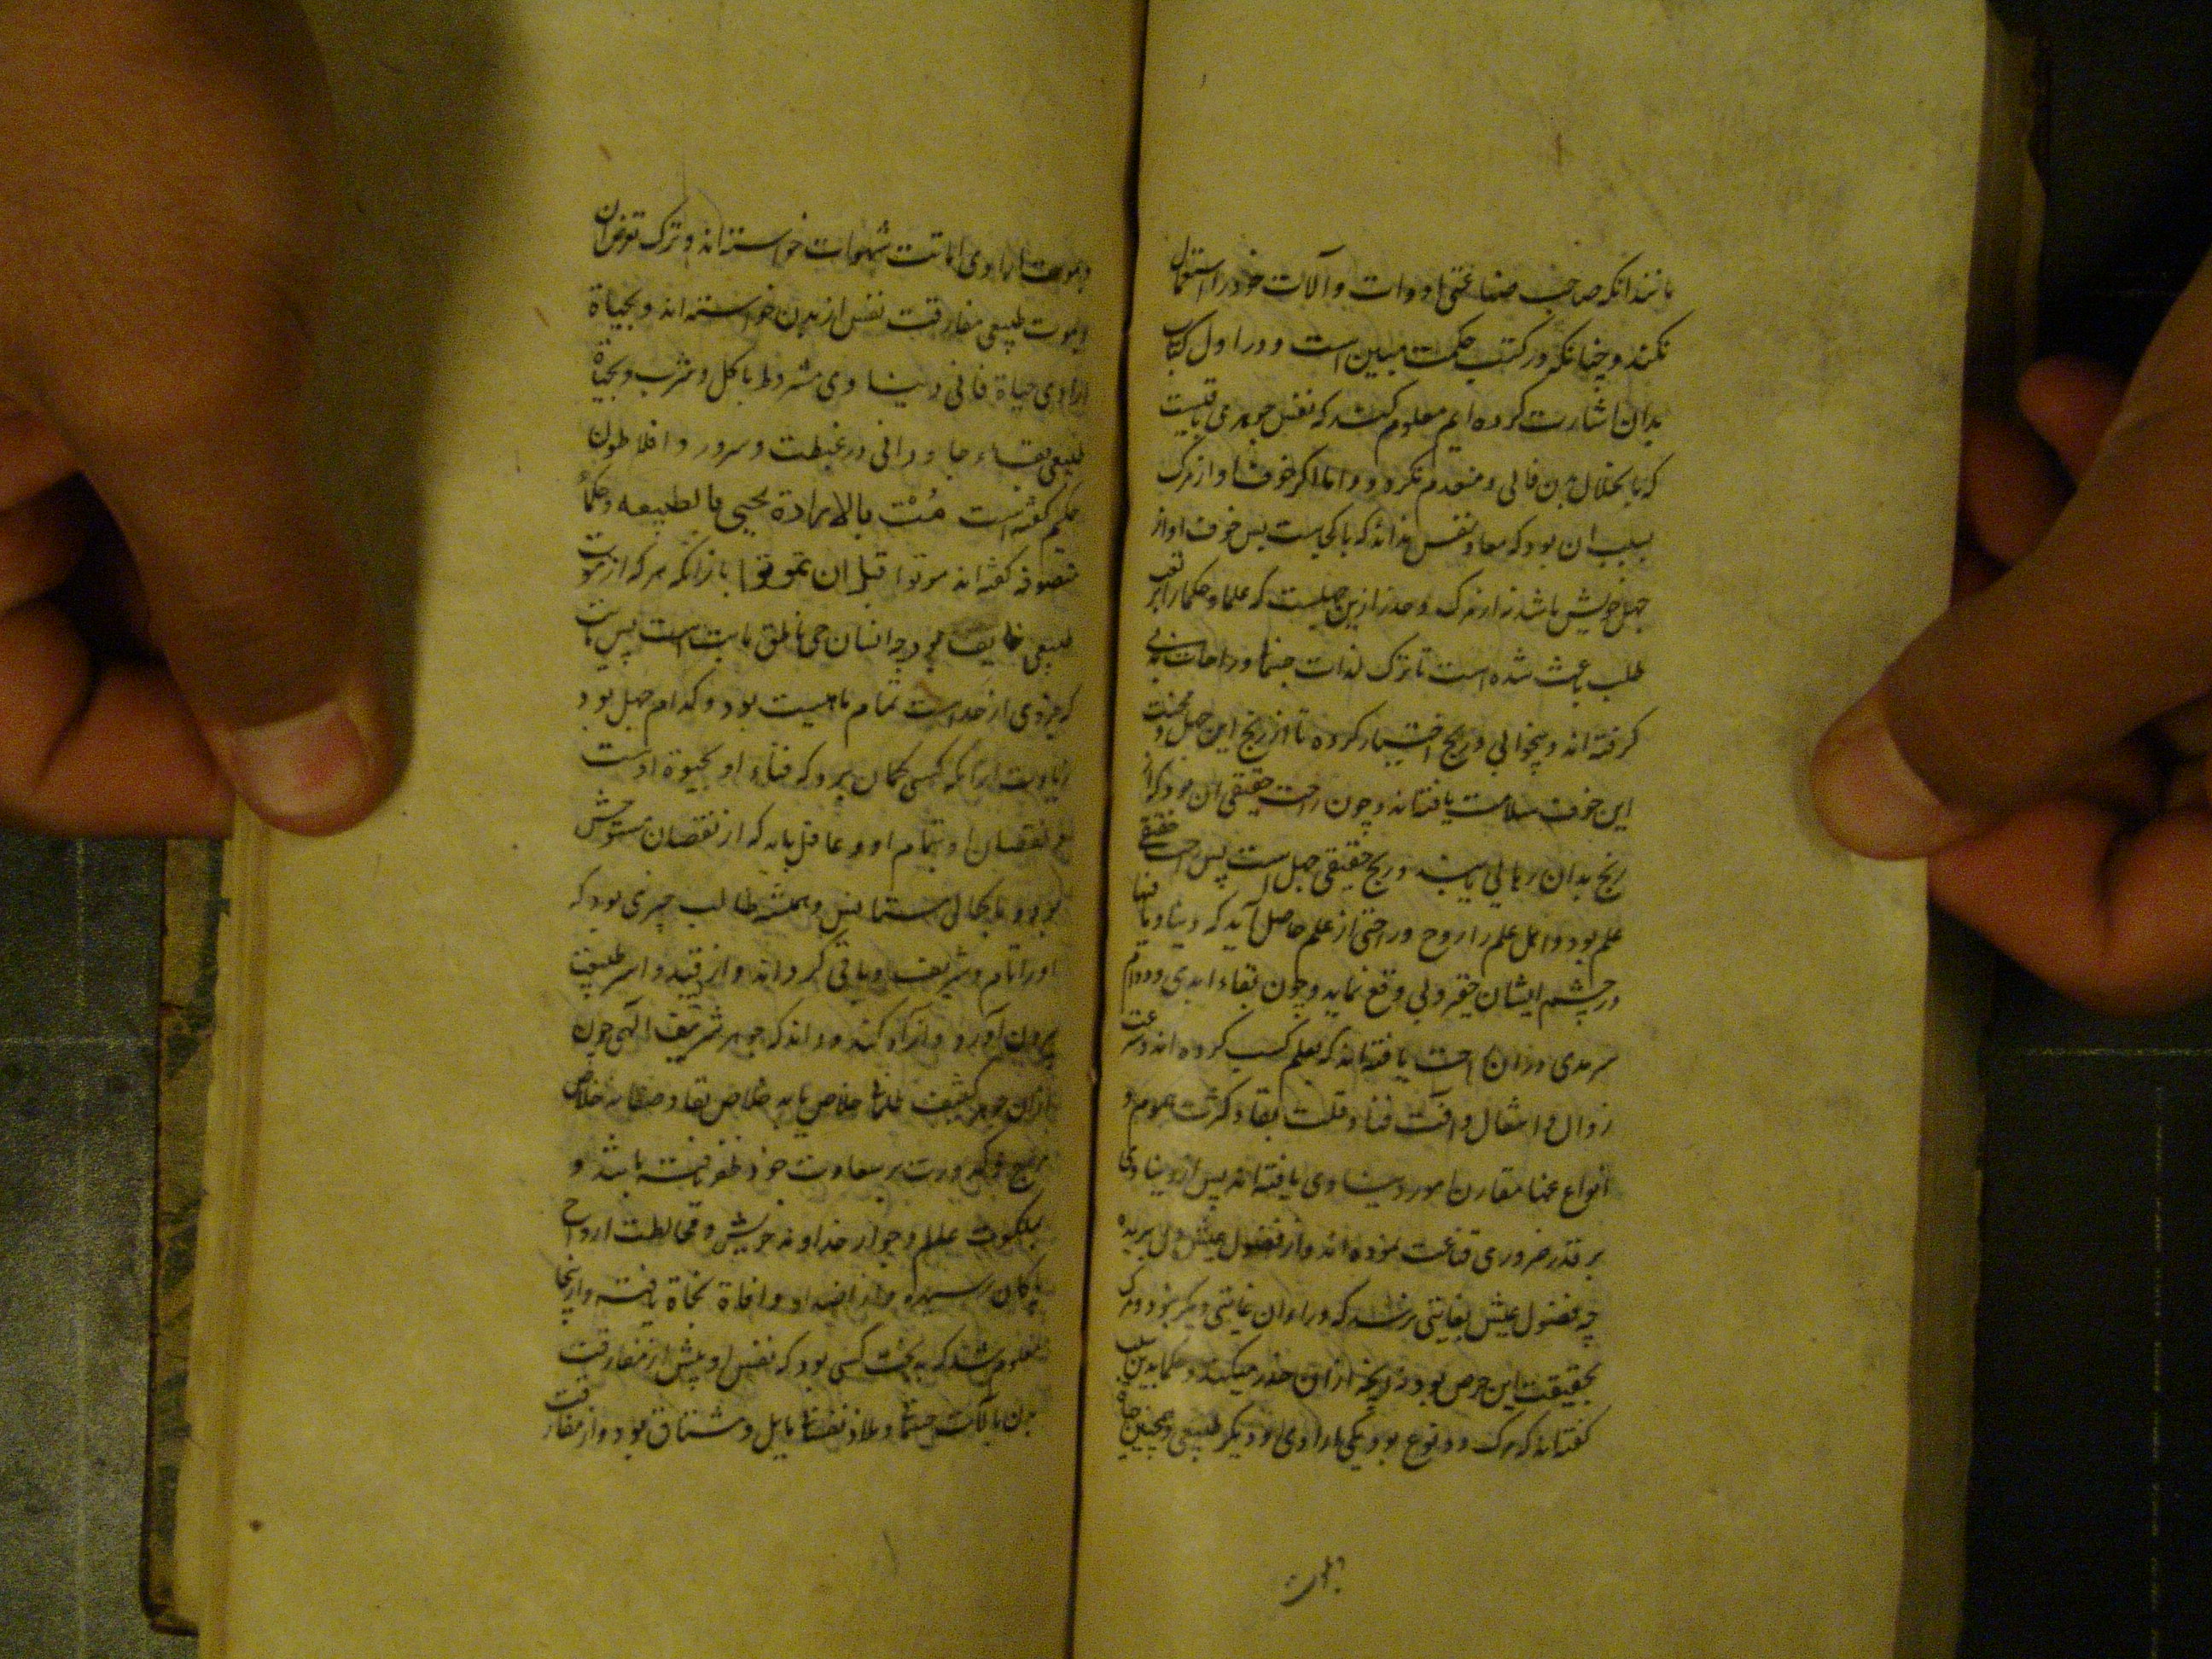 مانند انکه صاحب صناعتی ادوات و آلات خود را استعمال
نکند و چنانکه در کتب حکمت مبین است و در اول کتاب
بدان اشارت کرده ایم معلوم کند که نفس جوهری باقیست
که بانحلال بدن فانی و منعدم نکردد و اما اکر خوف او از مرک
بسبب ان بود که معاد نفس نداند که با کجاست پس خوف او از
جهل خویش باشد نه از مرک و حذر ازین جهلست که علما و حکما را بر تعب
طلب باعث شده است تا ترک لذات جسمانی و راحات بدنی
کرفته اند و بیخوابی و رنج اختیار کرده تا از رنج این جهل و محنت
این خوف سلامت یافته اند و چون راحت حقیقی ان بود که از
رنج بدان رهائی یابند و رنج حقیقی جهل است پس راحت حقیقی
علم بود و اهل علم را روح و راحتی از علم حاصل آید که دنیا و مافیها
در چشم ایشان حقیر و بی وقع نماید و چون بقاء ابدی و دوام
سرمدی در ان راحت یافته اند که بعلم کسب کرده اند و سرعت
زوال و انتقال و آفت فنا و قلت بقا و کثرت هموم و
انواع عنا مقارن امور دنیاوی یافته اند پس از دنیاوی
بر قدر ضروری قناعت نموده اند و از فضول عیش دل بریده
چه فضول عیش بغایتی نرسد که وراء ان غایتی دیکر نبود و مرک
بحقیقت این حرص بود نه آنچه از ان حذر میکنند و حکما بدین سبب
کفته اند که مرک دو نوع بود یکی ارادی و دیکر طبیعی و همچنین حیاة
و بموت ارادی اماتت شهوات خواسته اند و ترک تعرض ان
و بموت طبیعی مفارقت نفس از بدن خواسته اند و بحیاة
ارادی حیاة فانی دنیاوی مشروط باکل و شرب و بحیاة
طبیعی بقاء جاودانی در غبطت و سرور و افلاطون
حکیم کفته است مُت بالارادة تحیی بالطبیعه و حکماء
متصوفه کفته اند موتوا قبل ان تموتوا بازانکه هر که از موت
طبیعی خایف بود چه انسان حی ناطق مایت است پس مایت
که جزوی از حد است تمام ماهیت بود و کدام جهل بود
زیادت از انکه کسی کمان برد که فناء او بحیوة اوست
و نقصان او بتمام او و عاقل باید که از نقصان مستوحش
بود و با کمال مستانس و همیشه طالب چیزی بود که
او را تام و شریف و باقی کرداند و از قید و اسر طبیعت
بیرون آورد و آزاد کند و داند که جوهر شریف الهی چون
از ان جوهر کثیف ظلمانی خلاص یابد خلاص نقا و صفا نه خلاص
مزاج و کدورت بر سعادت خود ظفر یافته باشد و
بملکوت عالم و جوار خداوند خویش و مخالطت ارواح
پاکان رسیده و از اضداد و افاة نجاة یافته و از اینجا
معلوم شد که بدبخت کسی بود که نفس او پیش از مفارقت
بدن بآلات جسمانی و ملاذ نفسانی مایل و مشتاق بود و از مفارقت